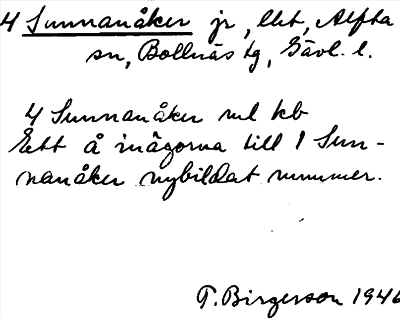 4 Sunnanåker jr, lht, Alfta
sn, Bollnäs tg, Gävl. l.
4 Sunnanåker enl kb
Ett å inägorna till 1 Sun-
nanåker nybildat nummer.
T. Birgerson 1946